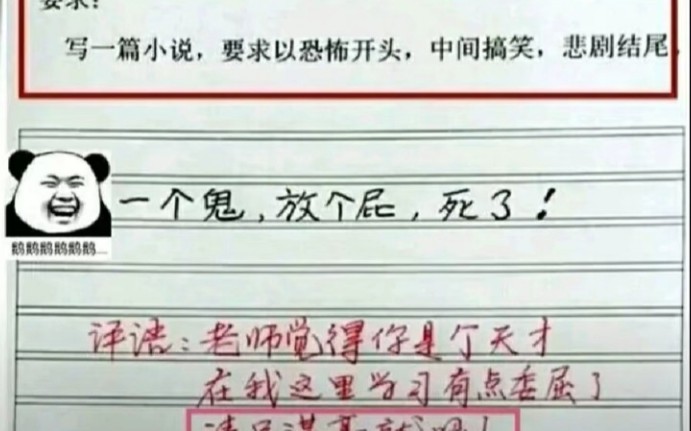 要求:
写一篇小说，要求以恐怖开头，中间搞笑，悲剧结尾，
一个鬼，放个屁，死了！
鹅鹅鹅鹅鹅鹅....
评语：老师觉得你是个天才
在我这里学习有点委屈了
请另谋高就吧！